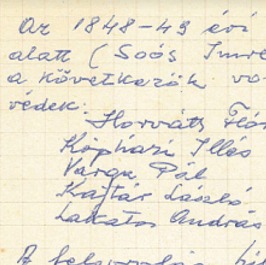 Az 1848-49 évi
alatt (Soós Imre
a következők vo-
védek:
Horváth Flór
Kőpházi Illés
Varga Pál
Kajtár László
Lakatos András
A felsorolás